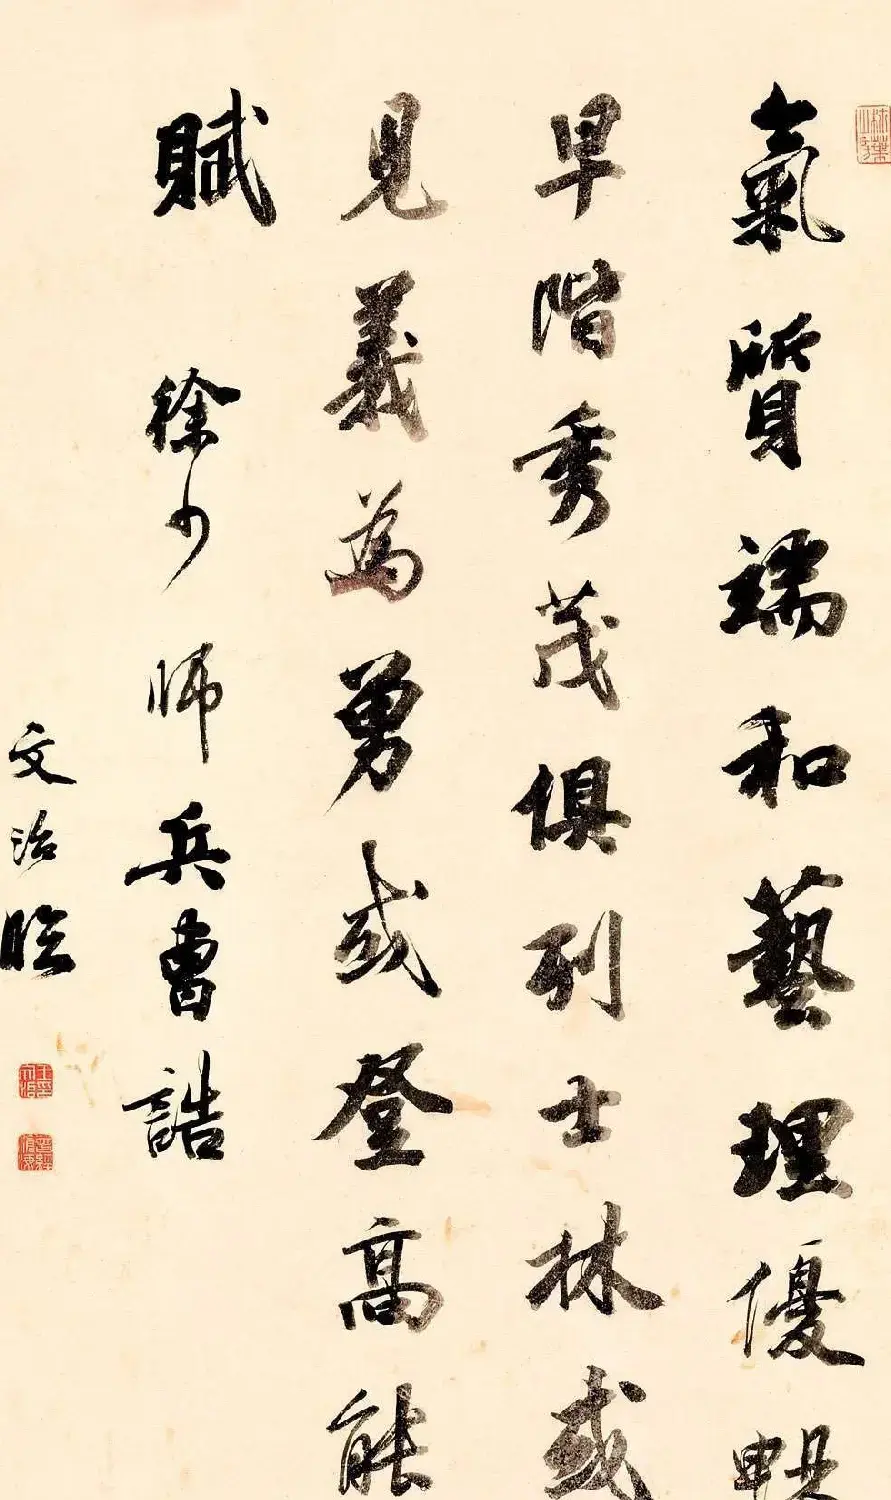 氣質端和藝理優暢
早階秀茂俱列士林或
見義為勇或登高能
賦
徐少師兵曹誥
文治臨